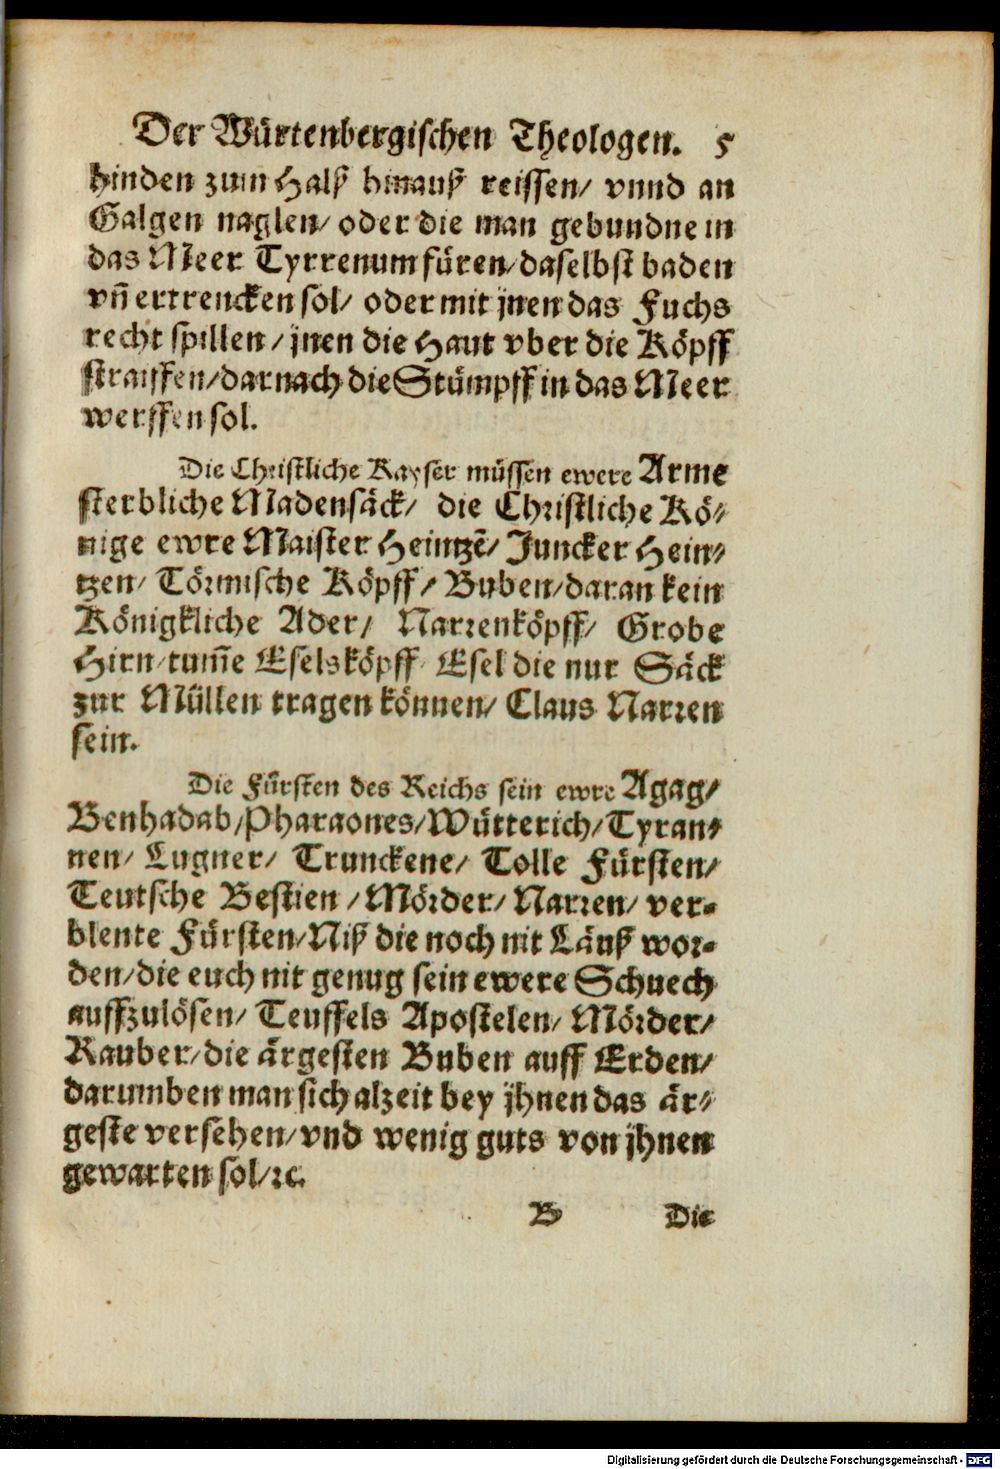 Der Würtenbergischen Theologen. 5
hinden zum Halß hinauß reissen/ vnnd an
Galgen naglen/ oder die man gebundne in
das Meer Tyrrenum füren/daselbst baden
vñ ertrencken sol/ oder mit jnen das Fuchs
recht spillen/ jnen die Haut vber die Köpff
straiffen/darnach die Stümpff in das Meer
werffen sol.
Die Christliche Kayser müssen ewere Arme
sterbliche Madensäck/ die Christliche Kö-
nige ewre Maister Heintzẽ/ Juncker Hein-
tzen/ Törmische Köpff/ Buben/daran kein
Königkliche Ader/ Narrenköpff/ Grobe
Hirn/tum̃e Eselsköpff/ Esel die nur Säck
zur Müllen tragen können/ Claus Narren
sein.
Die Fürsten des Reichs sein ewre Agag/
Benhadab/Pharaones/Wütterich/Tyran-
nen/ Lugner/ Trunckene/ Tolle Fürsten/
Teutsche Bestien/Mörder/Narren/ ver-
blente Fürsten/Niß die noch nit Läuß wor-
den/die euch nit genug sein ewere Schuech
auffzulösen/ Teuffels Apostelen/Mörder/
Rauber/die ärgesten Buben auff Erden/
darumben man sich alzeit bey jhnen das är-
geste versehen/vnd wenig guts von jhnen
gewarten sol/ꝛc.
B Die
Digitalisierung gefördert durch die Deutsche Forschungsgemeinschaft - DFG